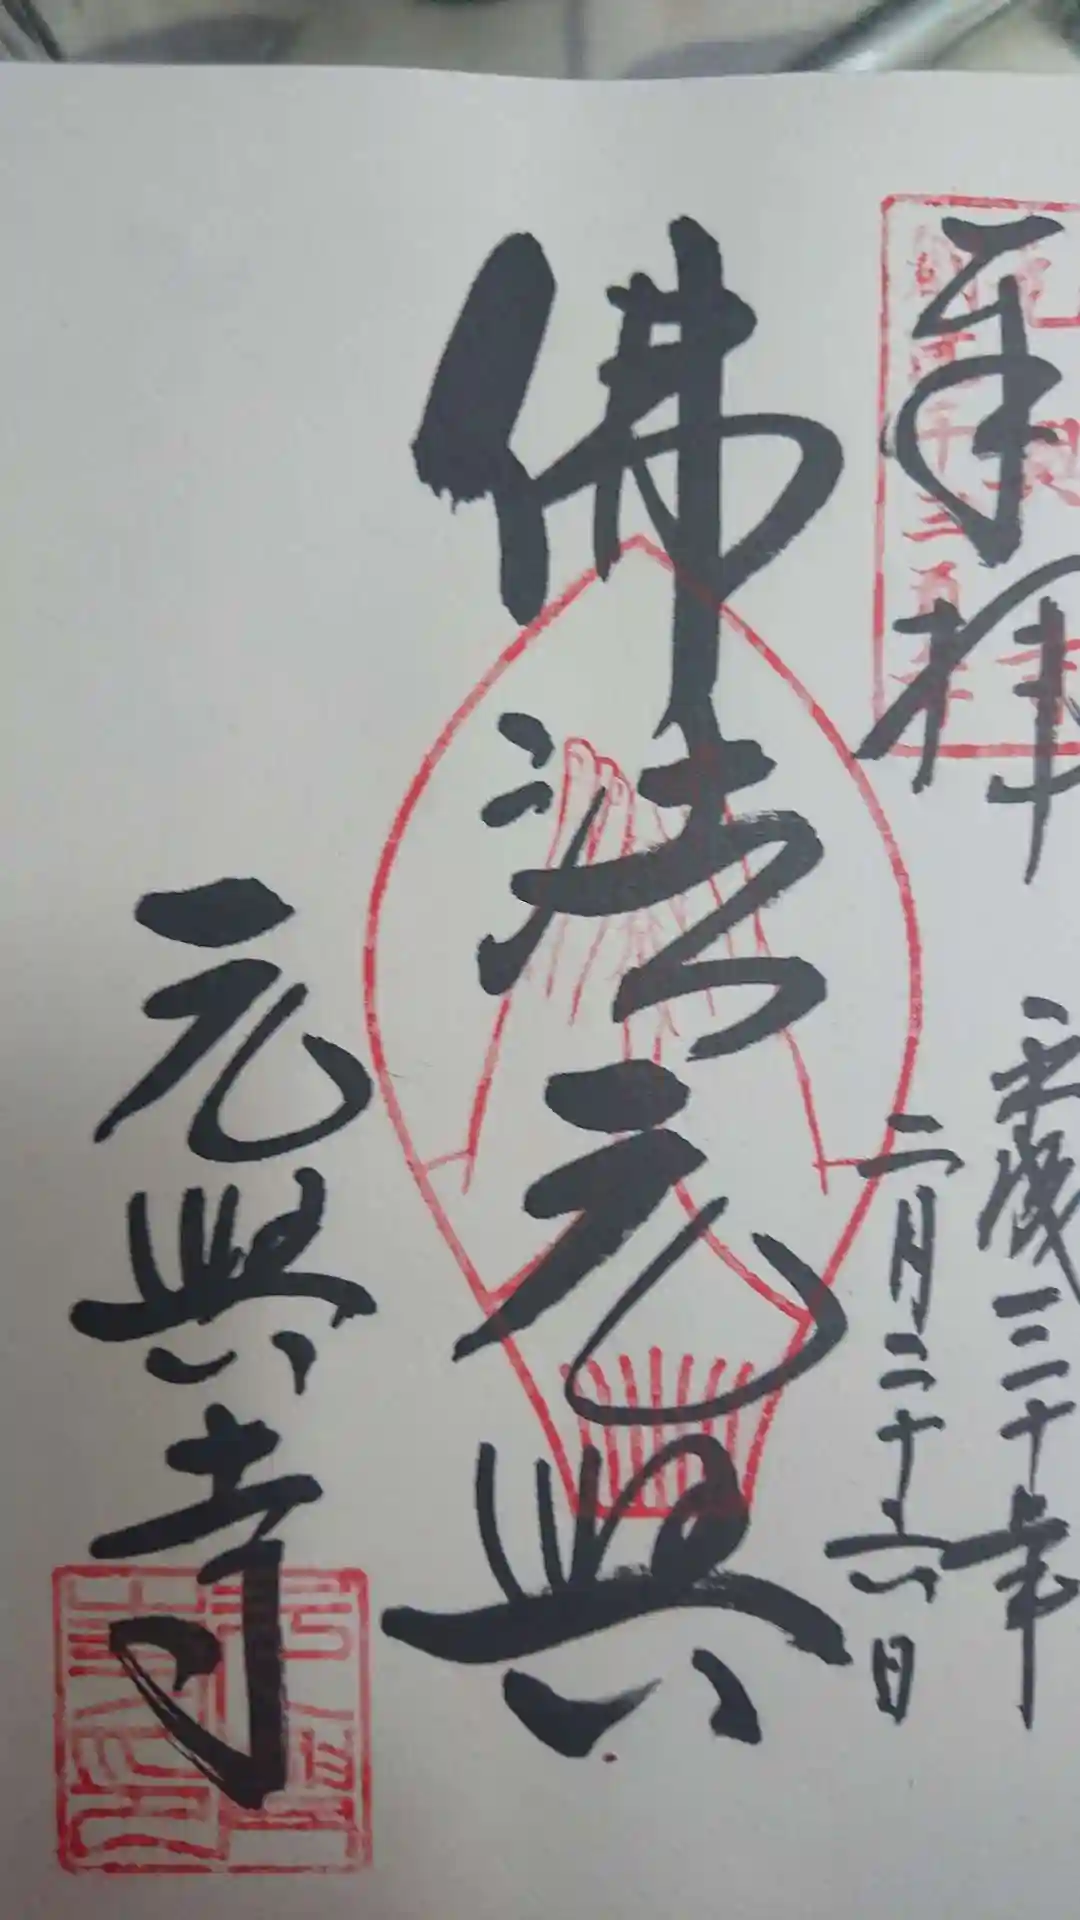 奉拝
平成三十年
二月二十六日
佛法元興
元興寺